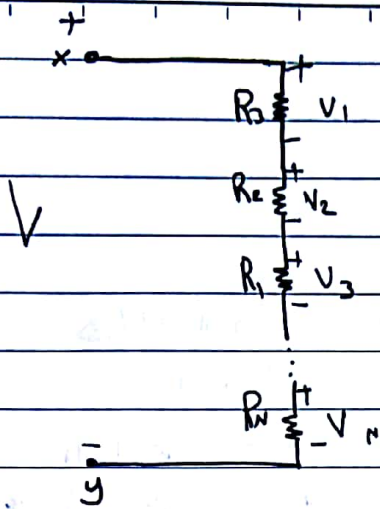 +
x +
R3 V1
-
+
R2 V2
-
V
+
R1 V3
-
+
RN VN
-
-
y